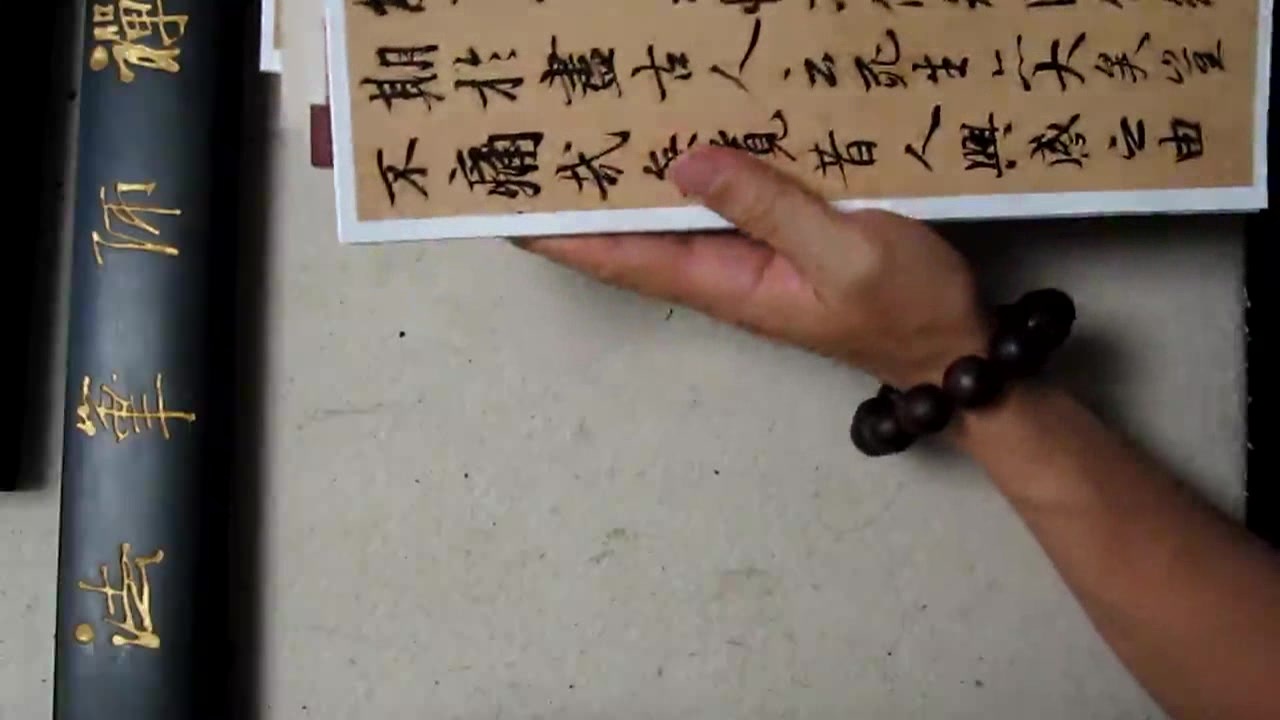 期於盡古人云死生亦大矣豈
不痛哉每昔人興感之由
筆法